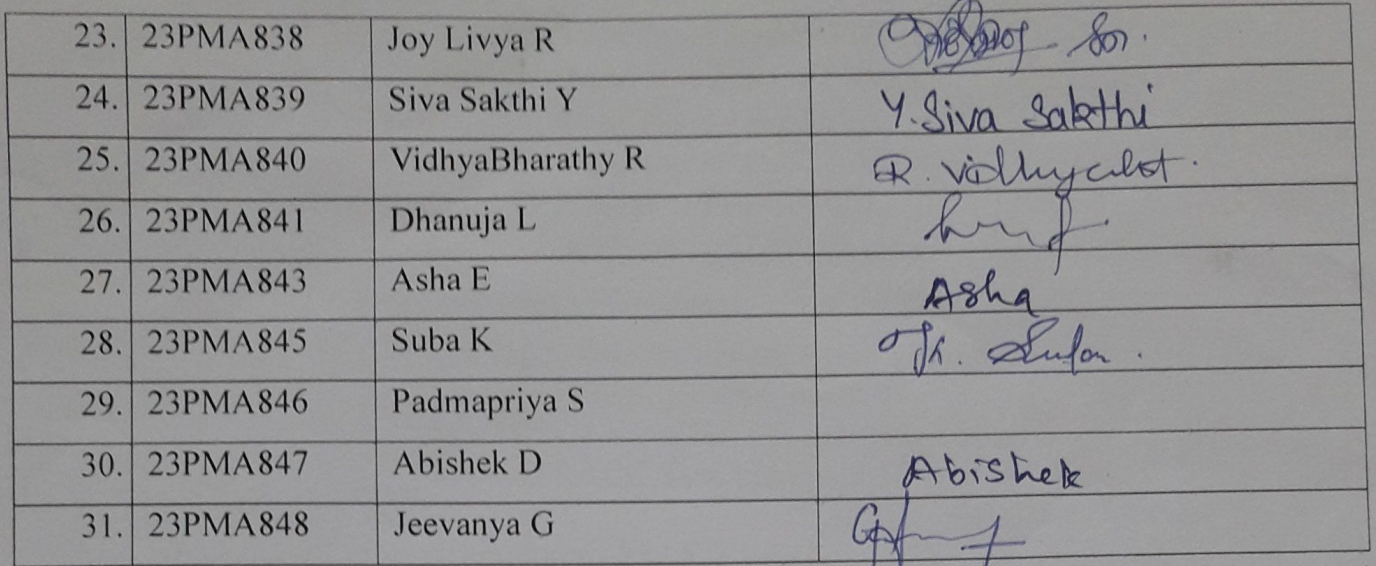 23. 23PMA838 Joy Livya R
24. 23PMA839 Siva Sakthi Y Y. Siva Sakthi
25. 23PMA840 VidhyaBharathy R R.
26. 23PMA841 Dhanuja L
27. 23PMA843 Asha E Asha
28. 23PMA845 Suba K
29. 23PMA846 Padmapriya S
30. 23PMA847 Abishek D Abishek
31. 23PMA848 Jeevanya G